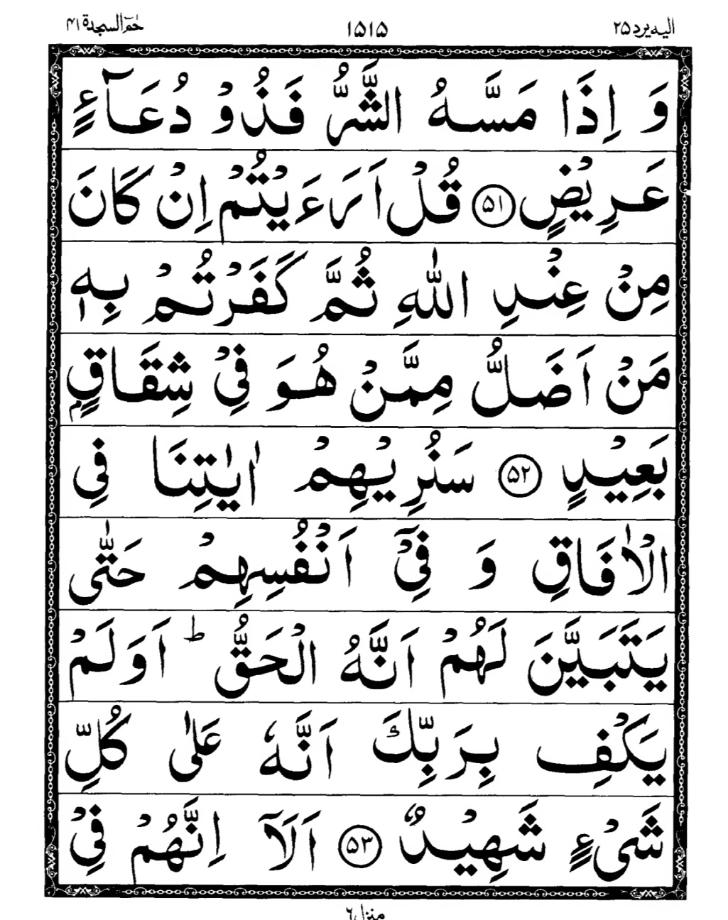 الیه یرد ۲۵ ۱۵۱۵ حٰمٓ السجدة ۴۱
وَ اِذَا مَسَّهُ الشَّرُّ فَذُوْ دُعَآءٍ
عَرِيْضٍ ۵۱ قُلْ اَرَءَيْتُمْ اِنْ كَانَ
مِنْ عِنْدِ اللّٰهِ ثُمَّ كَفَرْتُمْ بِهٖ
مَنْ اَضَلُّ مِمَّنْ هُوَ فِيْ شِقَاقٍۭ
بَعِيْدٍ ۵۲ سَنُرِيْهِمْ اٰيٰتِنَا فِي
الْاٰفَاقِ وَ فِيْٓ اَنْفُسِهِمْ حَتّٰى
يَتَبَيَّنَ لَهُمْ اَنَّهُ الْحَقُّ ؕ اَوَلَمْ
يَكْفِ بِرَبِّكَ اَنَّهٗ عَلٰى كُلِّ
شَيْءٍ شَهِيْدٌ ۵۳ اَلَآ اِنَّهُمْ فِيْ
منزل ٦